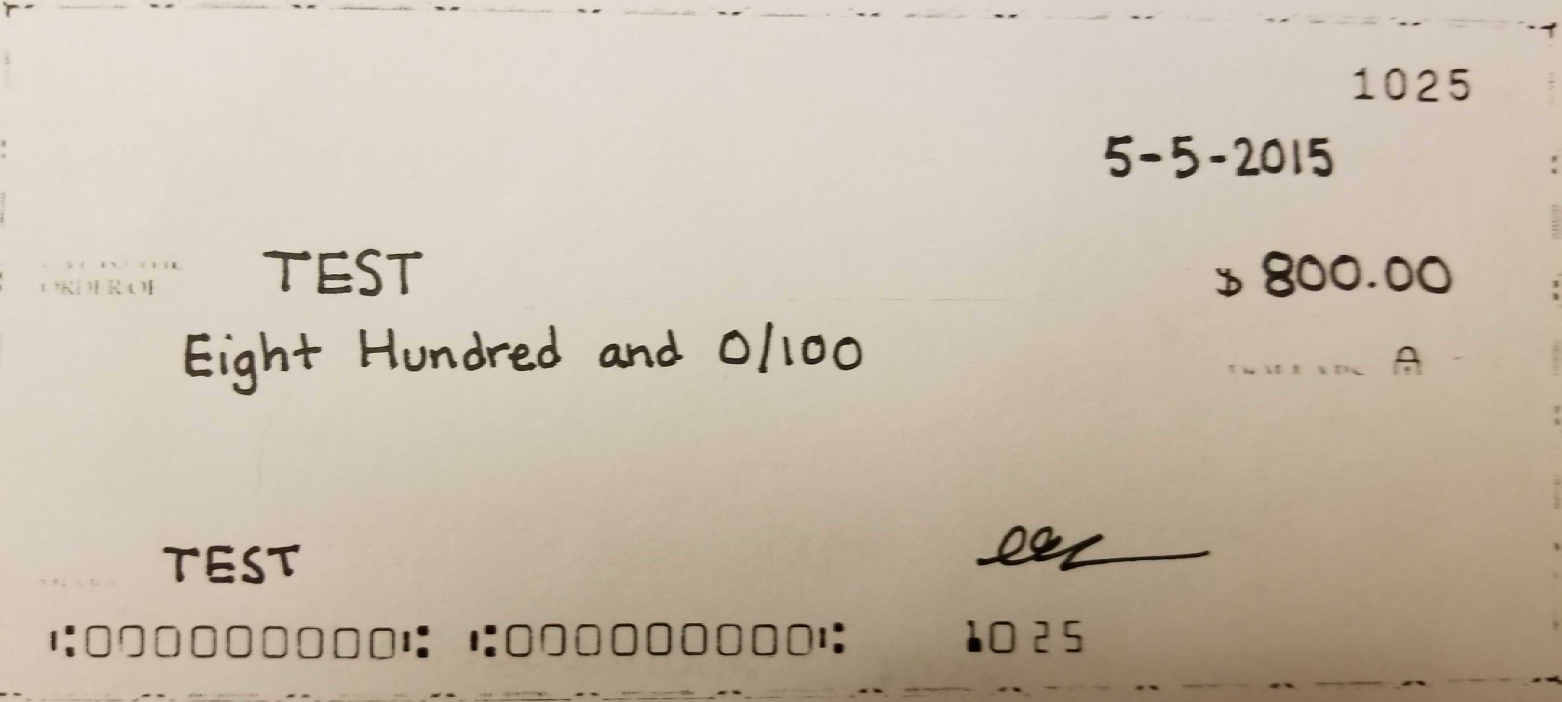 1025
5-5-2015
ORDER OF TEST $ 800.00
Eight Hundred and 0/100
TEST
⑆000000000⑆ ⑆000000000⑆ 1025